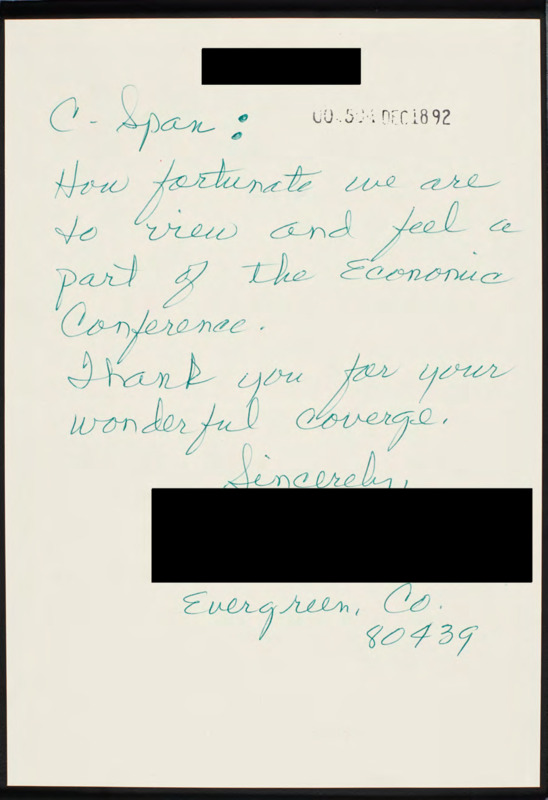 C-Span:
DEC 18 92
How fortunate we are
to view and feel a
part of the Economic
Conference.
Thank you for your
wonderful coverge.
Sincerely,
Evergreen, Co.
80439